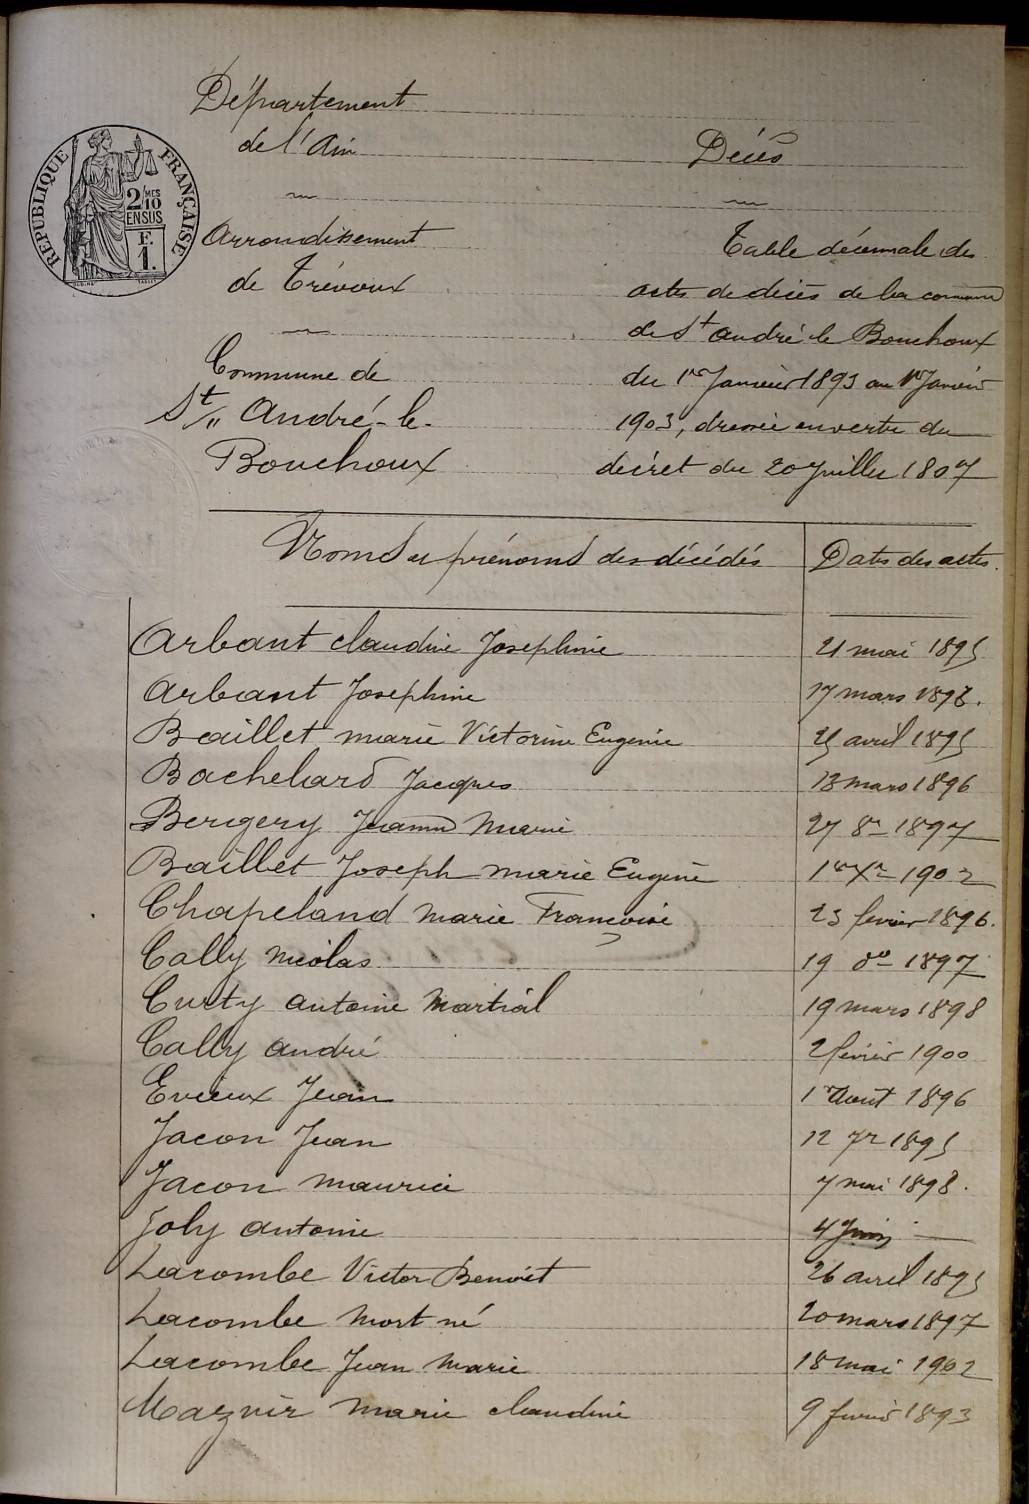 Département
de l'Ain
Arrondissement
de Trévoux
Commune de
St André-le-
Bouchoux
RÉPUBLIQUE FRANÇAISE
2/10 MES
EN SUS
F.
1.
Décès
Table décennale des
actes de décès de la commune
de St André le Bouchoux
du 1er Janvier 1893 au 1er Janvier
1903, dressée en vertu du
décret du 20 Juillet 1807
Noms et prénoms des décédés Dates des actes.
Arbant Claudine Josephine 21 mai 1895
Arbant Josephine 17 mars 1898.
Baillet marie Victorine Eugenie 25 avril 1895
Bachelard Jacques 13 mars 1896
Bergery Jeanne Marie 27 8re 1897
Baillet Joseph marie Eugène 1er Xre 1902
Chapeland Marie Françoise 23 fevrier 1896.
Cally Nicolas 19 8re 1897
Curty Antoine Martial 19 mars 1898
Cally André 2 février 1900
Evieux Jean 1er Août 1896
Jacon Jean 12 7re 1895
Jacon Maurice 7 mai 1898.
Joly Antoine 4 Juin —
Lacombe Victor Benoit 26 avril 1895
Lacombe Mort né 20 mars 1897
Lacombe Jean Marie 18 mai 1902
Marie Claudine 9 fevrier 1893